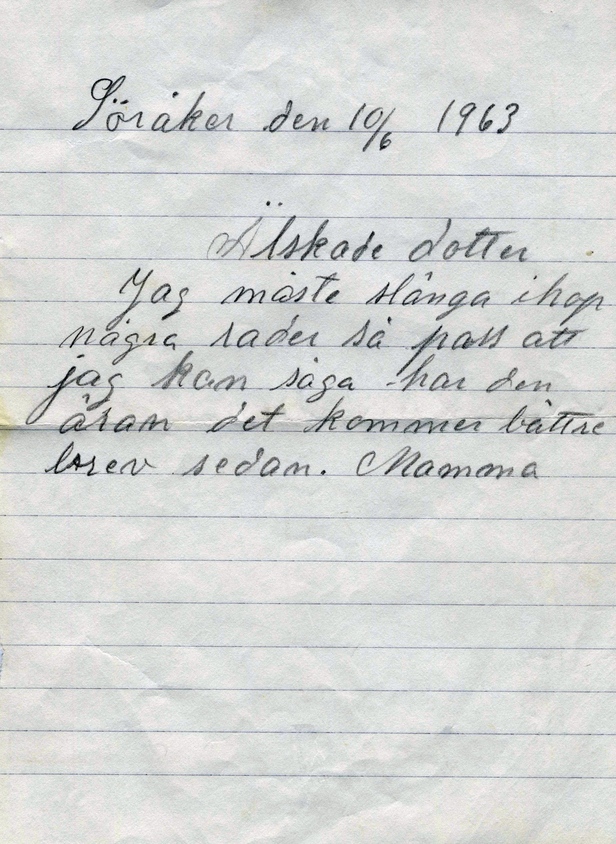 Söråker den 10/6 1963
Älskade dotter
Jag måste slänga ihop
några rader så pass att
jag kan säga har den
äran det kommer bättre
brev sedan. Mamma